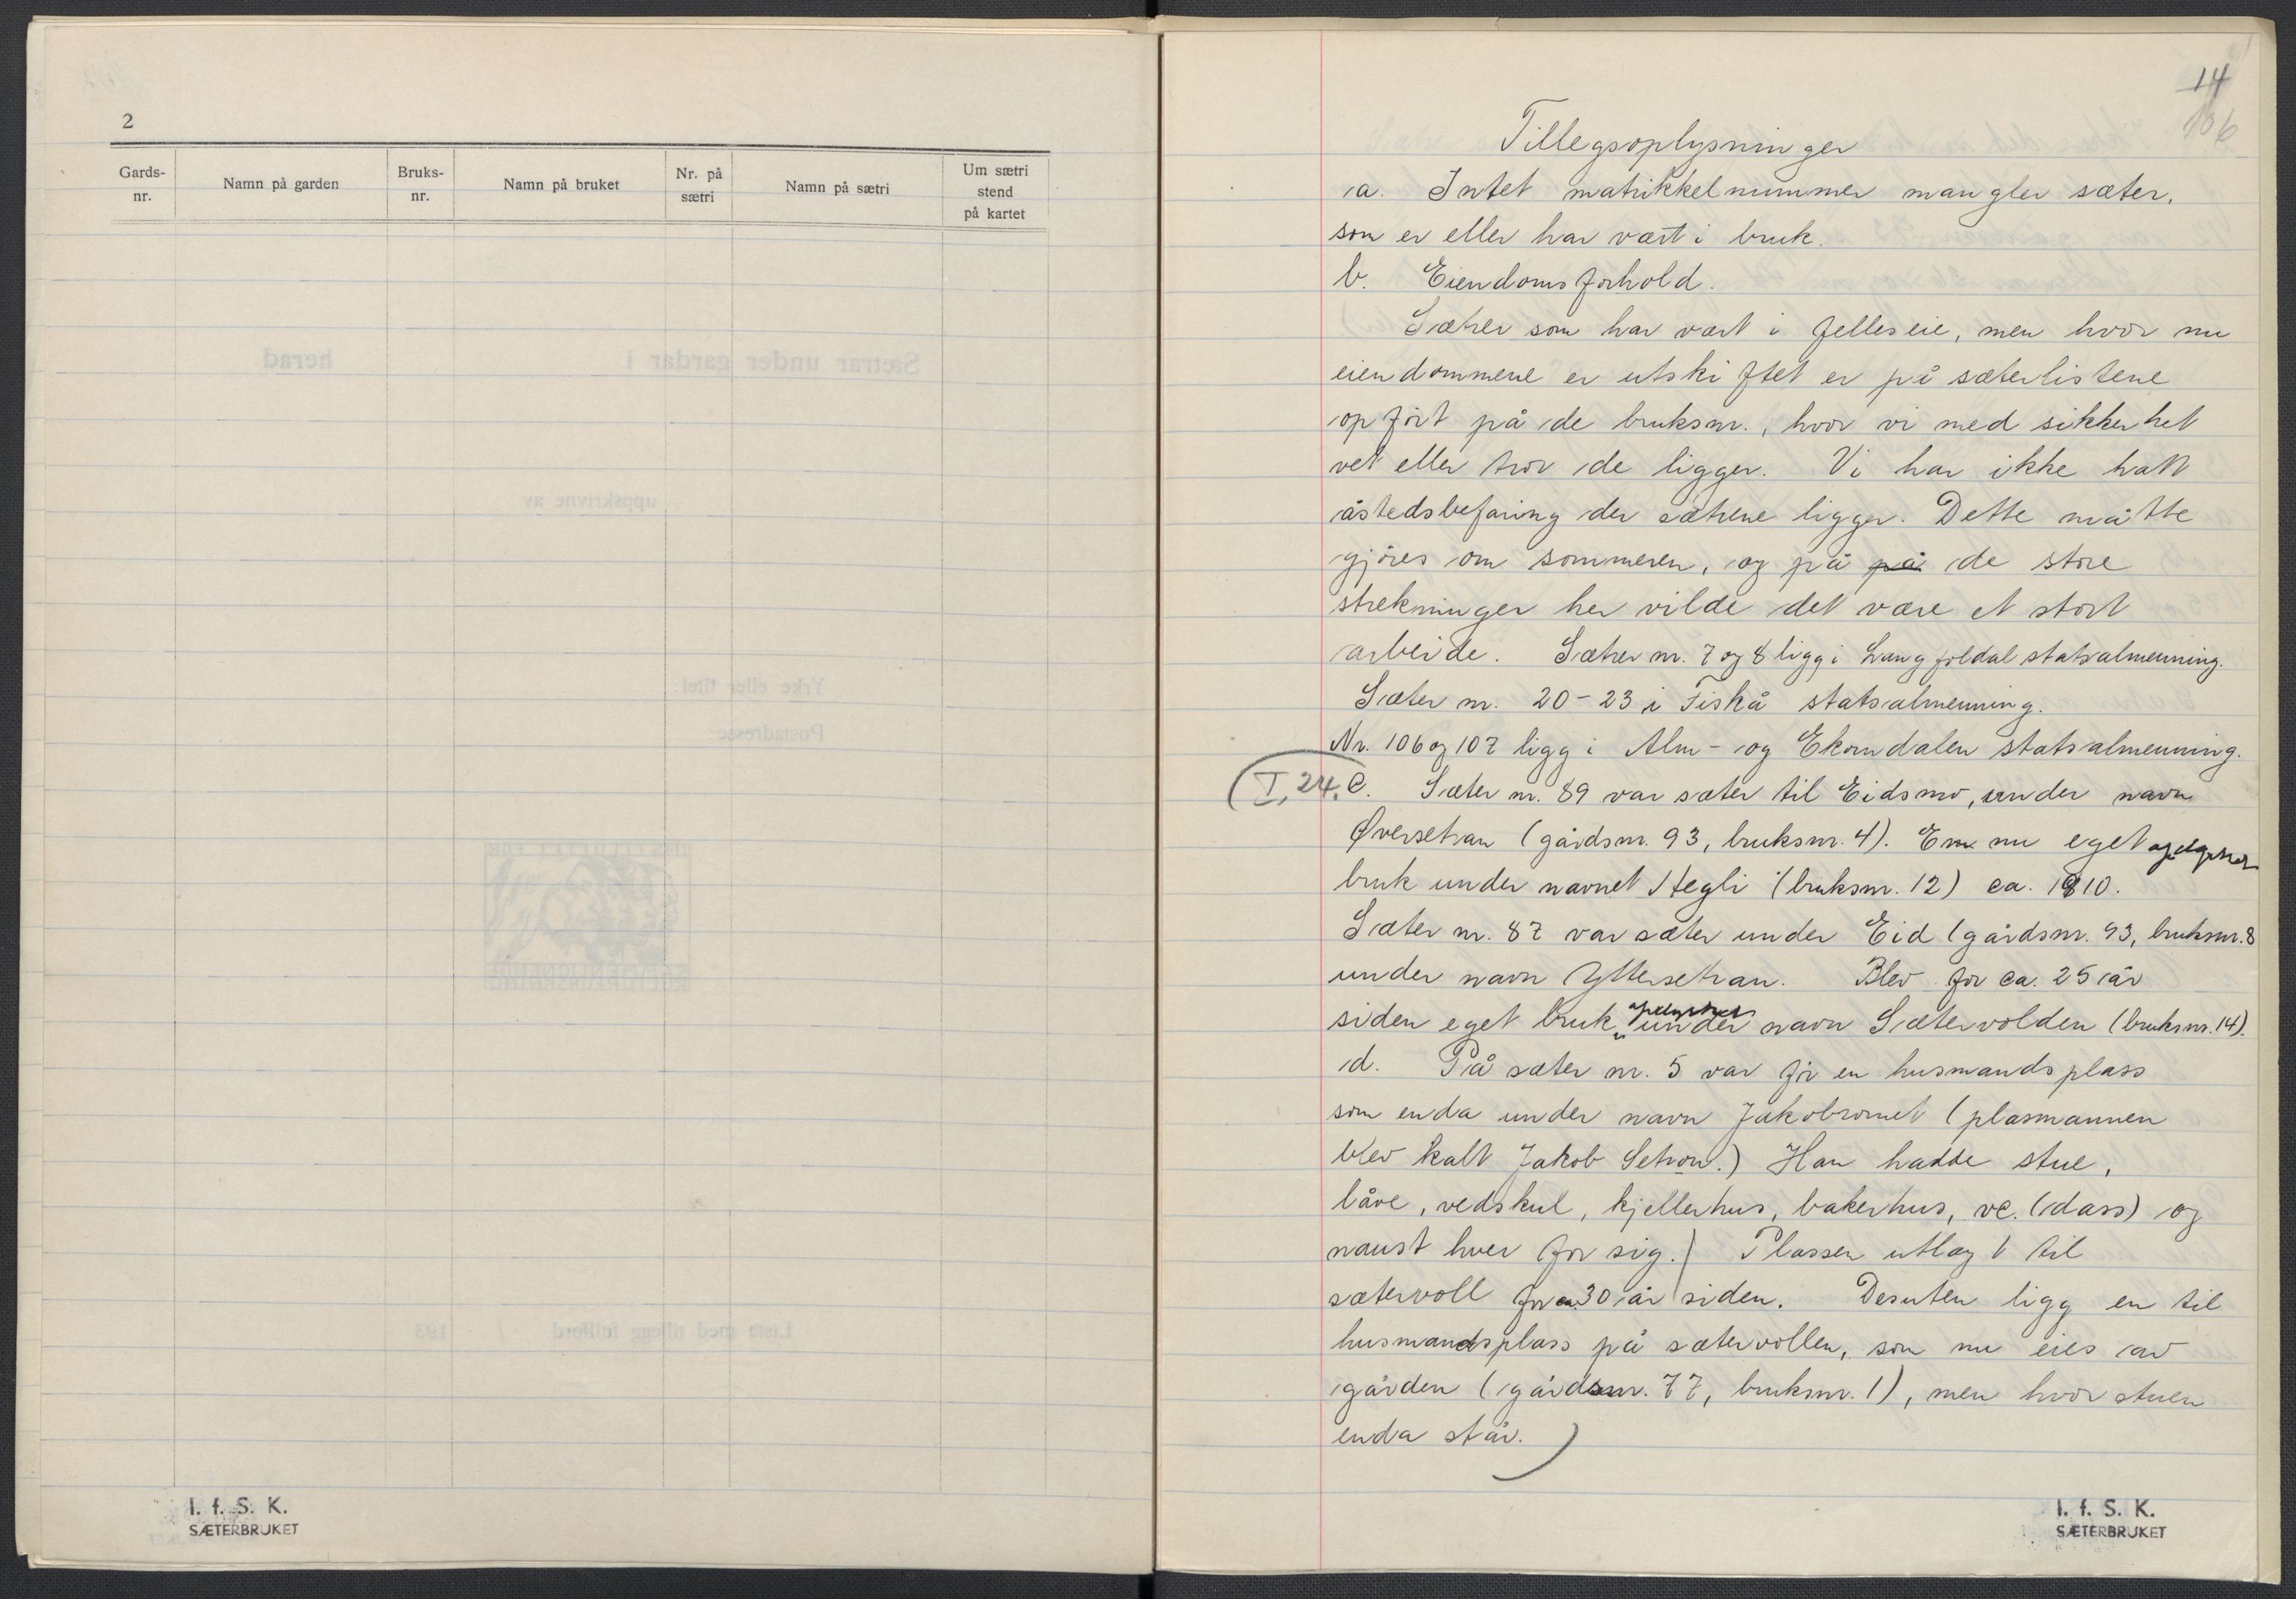 2
Gards-
nr.
Namn på garden
Bruks-
nr.
Namn på bruket
Nr. på
sætri
Namn på sætri
Um sætri
stend
på kartet
I. f. S. K.
SÆTERBRUKET
14
106
Tillegsoplysninger
a. Intet matrikkelnummer mangler sæter,
som er eller har vært i bruk.
b. Eiendomsforhold.
Sætrer som har vært i felleseie, men hvor nu
eiendommene er utskiftet er på sæterlistene
opført på de bruksnr., hvor vi med sikkerhet
vet eller tror de ligger. Vi har ikke hatt
åstedsbefaring der sætrene ligger. Dette måtte
gjøres om sommeren, og på på de store
strekninger her vilde det være et stort
arbeide. Sætrer nr. 7 og 8 ligg i Langfoldal statsalmenning.
Sæter nr. 20-23 i Fiskå statsalmenning.
Nr. 106 og 107 ligg i Alm- og Ekorndalen statsalmenning.
(I, 24. c. Sæter nr. 89 var sæter til Eidsmo, under navn
Øversetran (gårdsnr. 93, bruksnr. 4). Er nu eget
bruk under navnet Hegli (bruksnr. 12) ca. 1810.
Sæter nr. 87 var sæter under Eid (gårdsnr. 93, bruksnr. 8
under navn Yttersetran. Blev for ca. 25 år
siden eget bruk under navn Sætervolden (bruksnr. 14).
d. På sæter nr. 5 var før en husmandsplass
som enda under navn Jakobromet (plasmannen
blev kalt Jakob Setron.) Han hadde stue,
låve, vedskul, kjellerhus, bakerhus, vc. (dass) og
naust hver for sig.) Plassen utlagt til
sætervoll for ca. 30 år siden. Desuten ligg en til
husmandsplass på sætervollen, som nu eies av
gården (gårdsnr. 77, bruksnr. 1), men hvor stuen
enda står.)
I. f. S. K.
SÆTERBRUKET